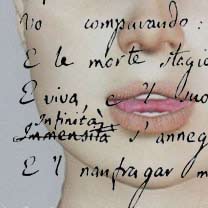 Vo comparando:
E le morte stagio
E viva, e 'l suo
Infinità
Immensità s'anneg
E 'l naufragar m